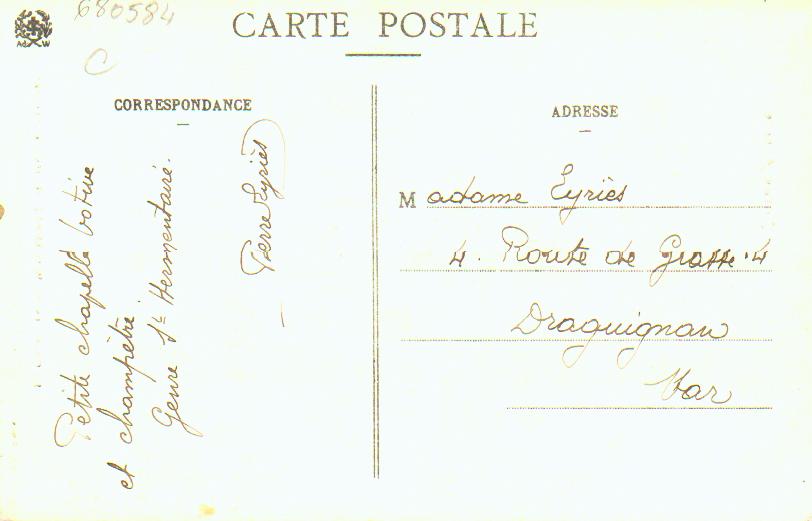 680584
C
CARTE POSTALE
CORRESPONDANCE
Petite chapelle votive
et champêtre.
Genre St Hermentaire.
Pierre Eyriès
ADRESSE
Madame Eyriès
4. Route de Grasse. 4
Draguignan
Var